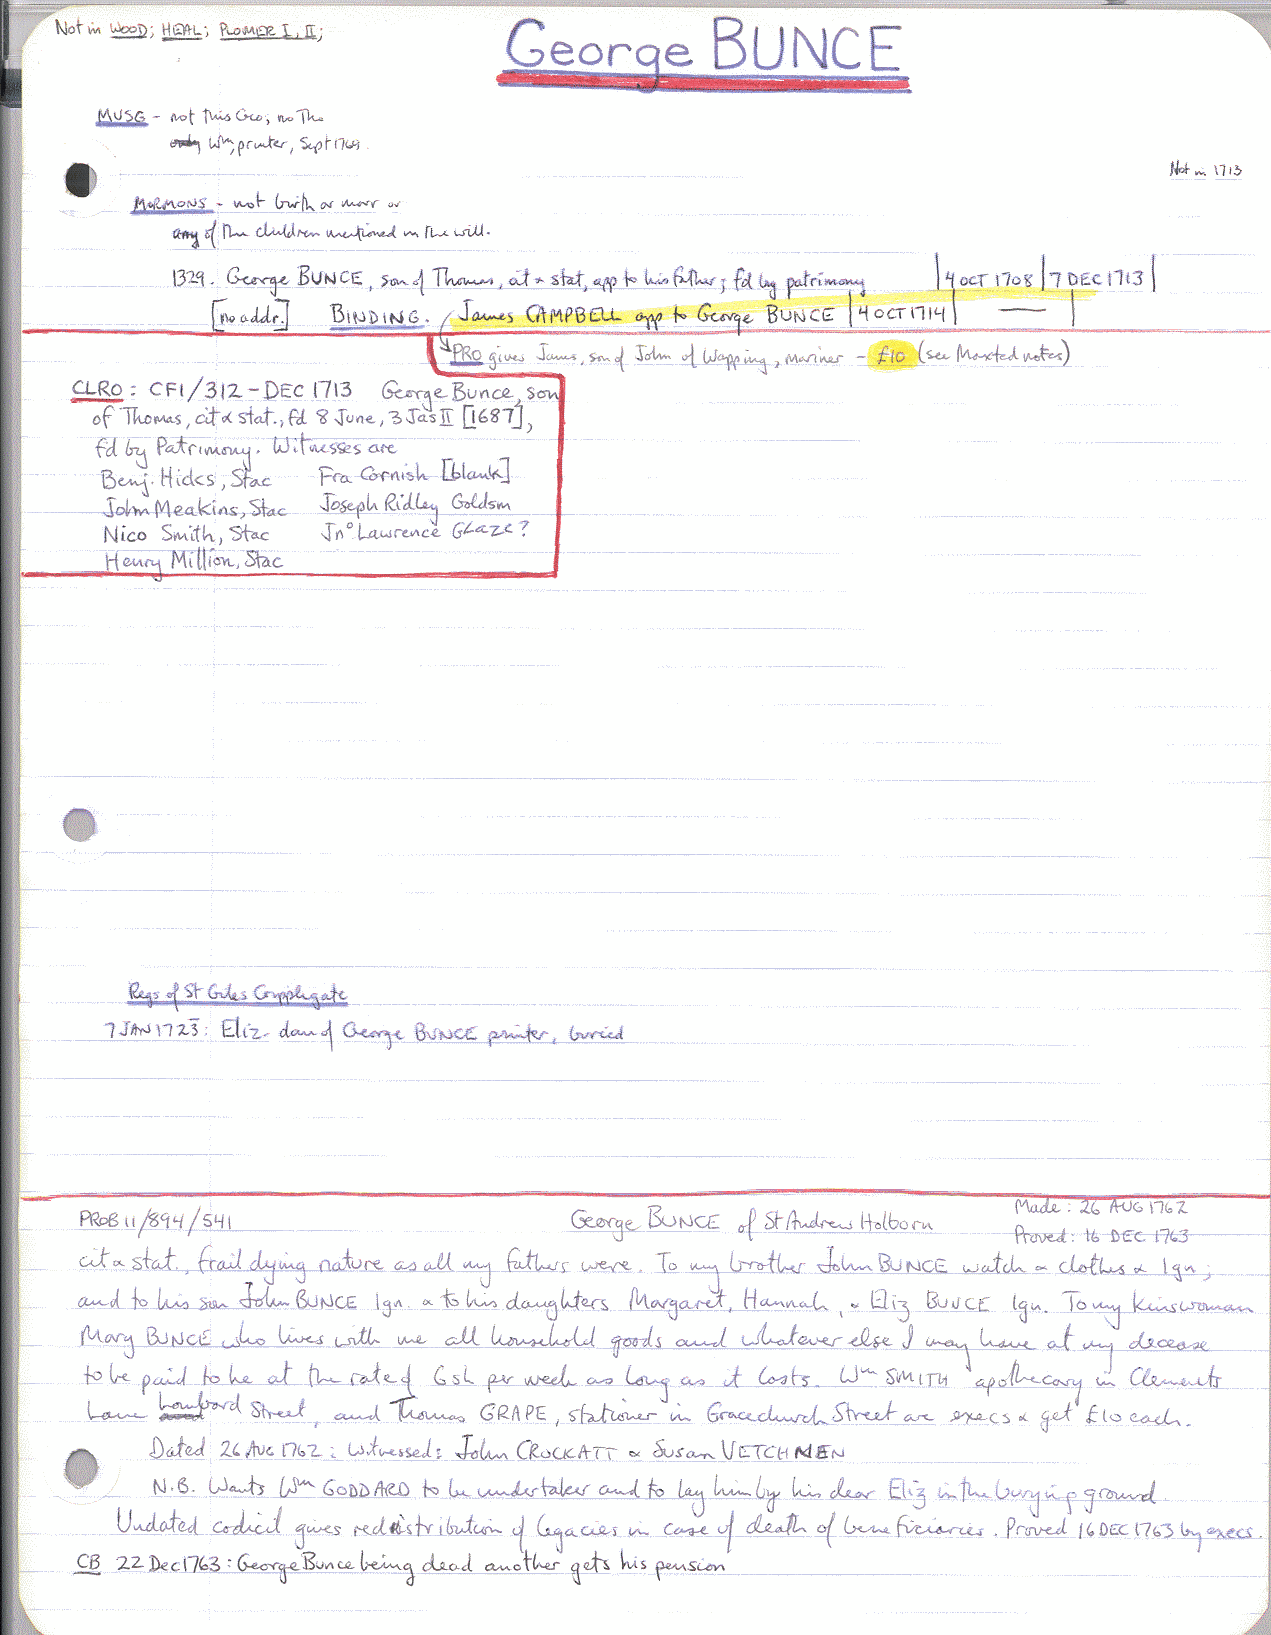 Not in WOOD; HEAL; PLOMER I, II;
George BUNCE
MUSG - not this Geo; no Tho
only Wm, printer, Sept 1769.
Not in 1713
MORMONS - not birth or marr or
any of the children mentioned in the will.
1329. George BUNCE, son of Thomas, cit & stat, app to his father; fd by patrimony | 4 OCT 1708 | 7 DEC 1713 |
[no addr.] BINDING. James CAMPBELL app to George BUNCE | 4 OCT 1714 | — |
PRO gives James, son of John of Wapping, mariner - £10 (see Maxted notes)
CLRO: CF1/312 - DEC 1713 George Bunce, son
of Thomas, cit & stat., fd 8 June, 3 Jas II [1687],
fd by Patrimony. Witnesses are
Benj. Hicks, Stac Fra Cornish [blank]
John Meakins, Stac Joseph Ridley Goldsm
Nico Smith, Stac Jno Lawrence Glaze?
Henry Million, Stac
Regs of St Giles Cripplegate
7 JAN 1723: Eliz. dau of George BUNCE printer, buried
PROB 11/894/541 George BUNCE of St Andrew Holborn Made: 26 AUG 1762
Proved: 16 DEC 1763
cit & stat., frail dying nature as all my fathers were. To my brother John BUNCE watch & clothes & 1gn;
and to his son John BUNCE 1gn. & to his daughters Margaret, Hannah, & Eliz BUNCE 1gn. To my kinswoman
Mary BUNCE who lives with me all household goods and whatever else I may have at my decease
to be paid to he at the rate of 6sh per week as long as it lasts. Wm SMITH apothecary in Clements
Lane Lombard Street, and Thomas GRAPE, stationer in Gracechurch Street are execs & get £10 each.
Dated 26 AUG 1762: Witnessed: John CROCKATT & Susan VETCHMEN
N.B. Wants Wm GODDARD to be undertaker and to lay him by his dear Eliz in the burying ground.
Undated codicil gives redistribution of legacies in case of death of beneficiaries. Proved 16 DEC 1763 by execs.
CB 22 Dec 1763: George Bunce being dead another gets his pension